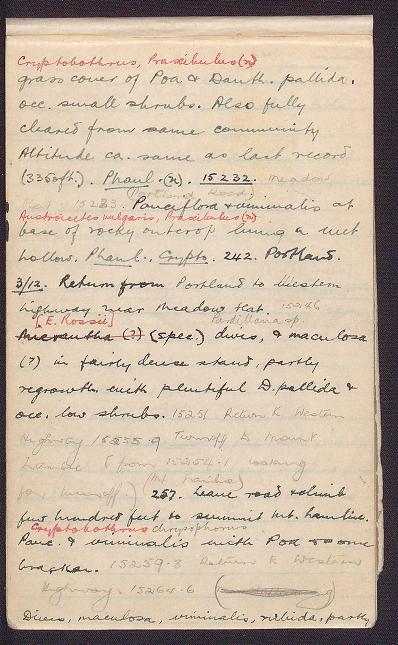 Cryptobothrus, Praxibulus (n)
grass cover of Poa & Danth. pallida.
occ. small shrubs. Also fully
cleared from same community
Altitude ca. same as last record
(3350ft.). Phaul. (n). 15232. Meadow
15233. (Portland Road)
Pauciflora & viminalis at
Austroicetes vulgaris, Praxibulus (n)
base of rocky outcrop lining a wet
hollow. Phaul., Crypto. 242. Portland.
3/12. Return from Portland to Western
highway near Meadow Flat. 15246
[E. Rossii] Pardillana sp.
Micrantha (?) (spec.) dives, & maculosa
(?) in fairly dense stand, partly
regrowth with plentiful D. pallida &
occ. low shrubs. 15251 Return to Western
Highway 15255.9 Turnoff to Mount
(from 15254.1 looking
for turnoff) (Mt. Hamlin)
257. Leave road & climb
few hundred feet to summit Mt. Hamlin.
Cryptobothrus chrysophorus
Pauc. & viminalis with Poa & some
bracken. 15259.8 Return to Western
Highway. 15264.6
Dives, maculosa, viminalis, rubida, partly